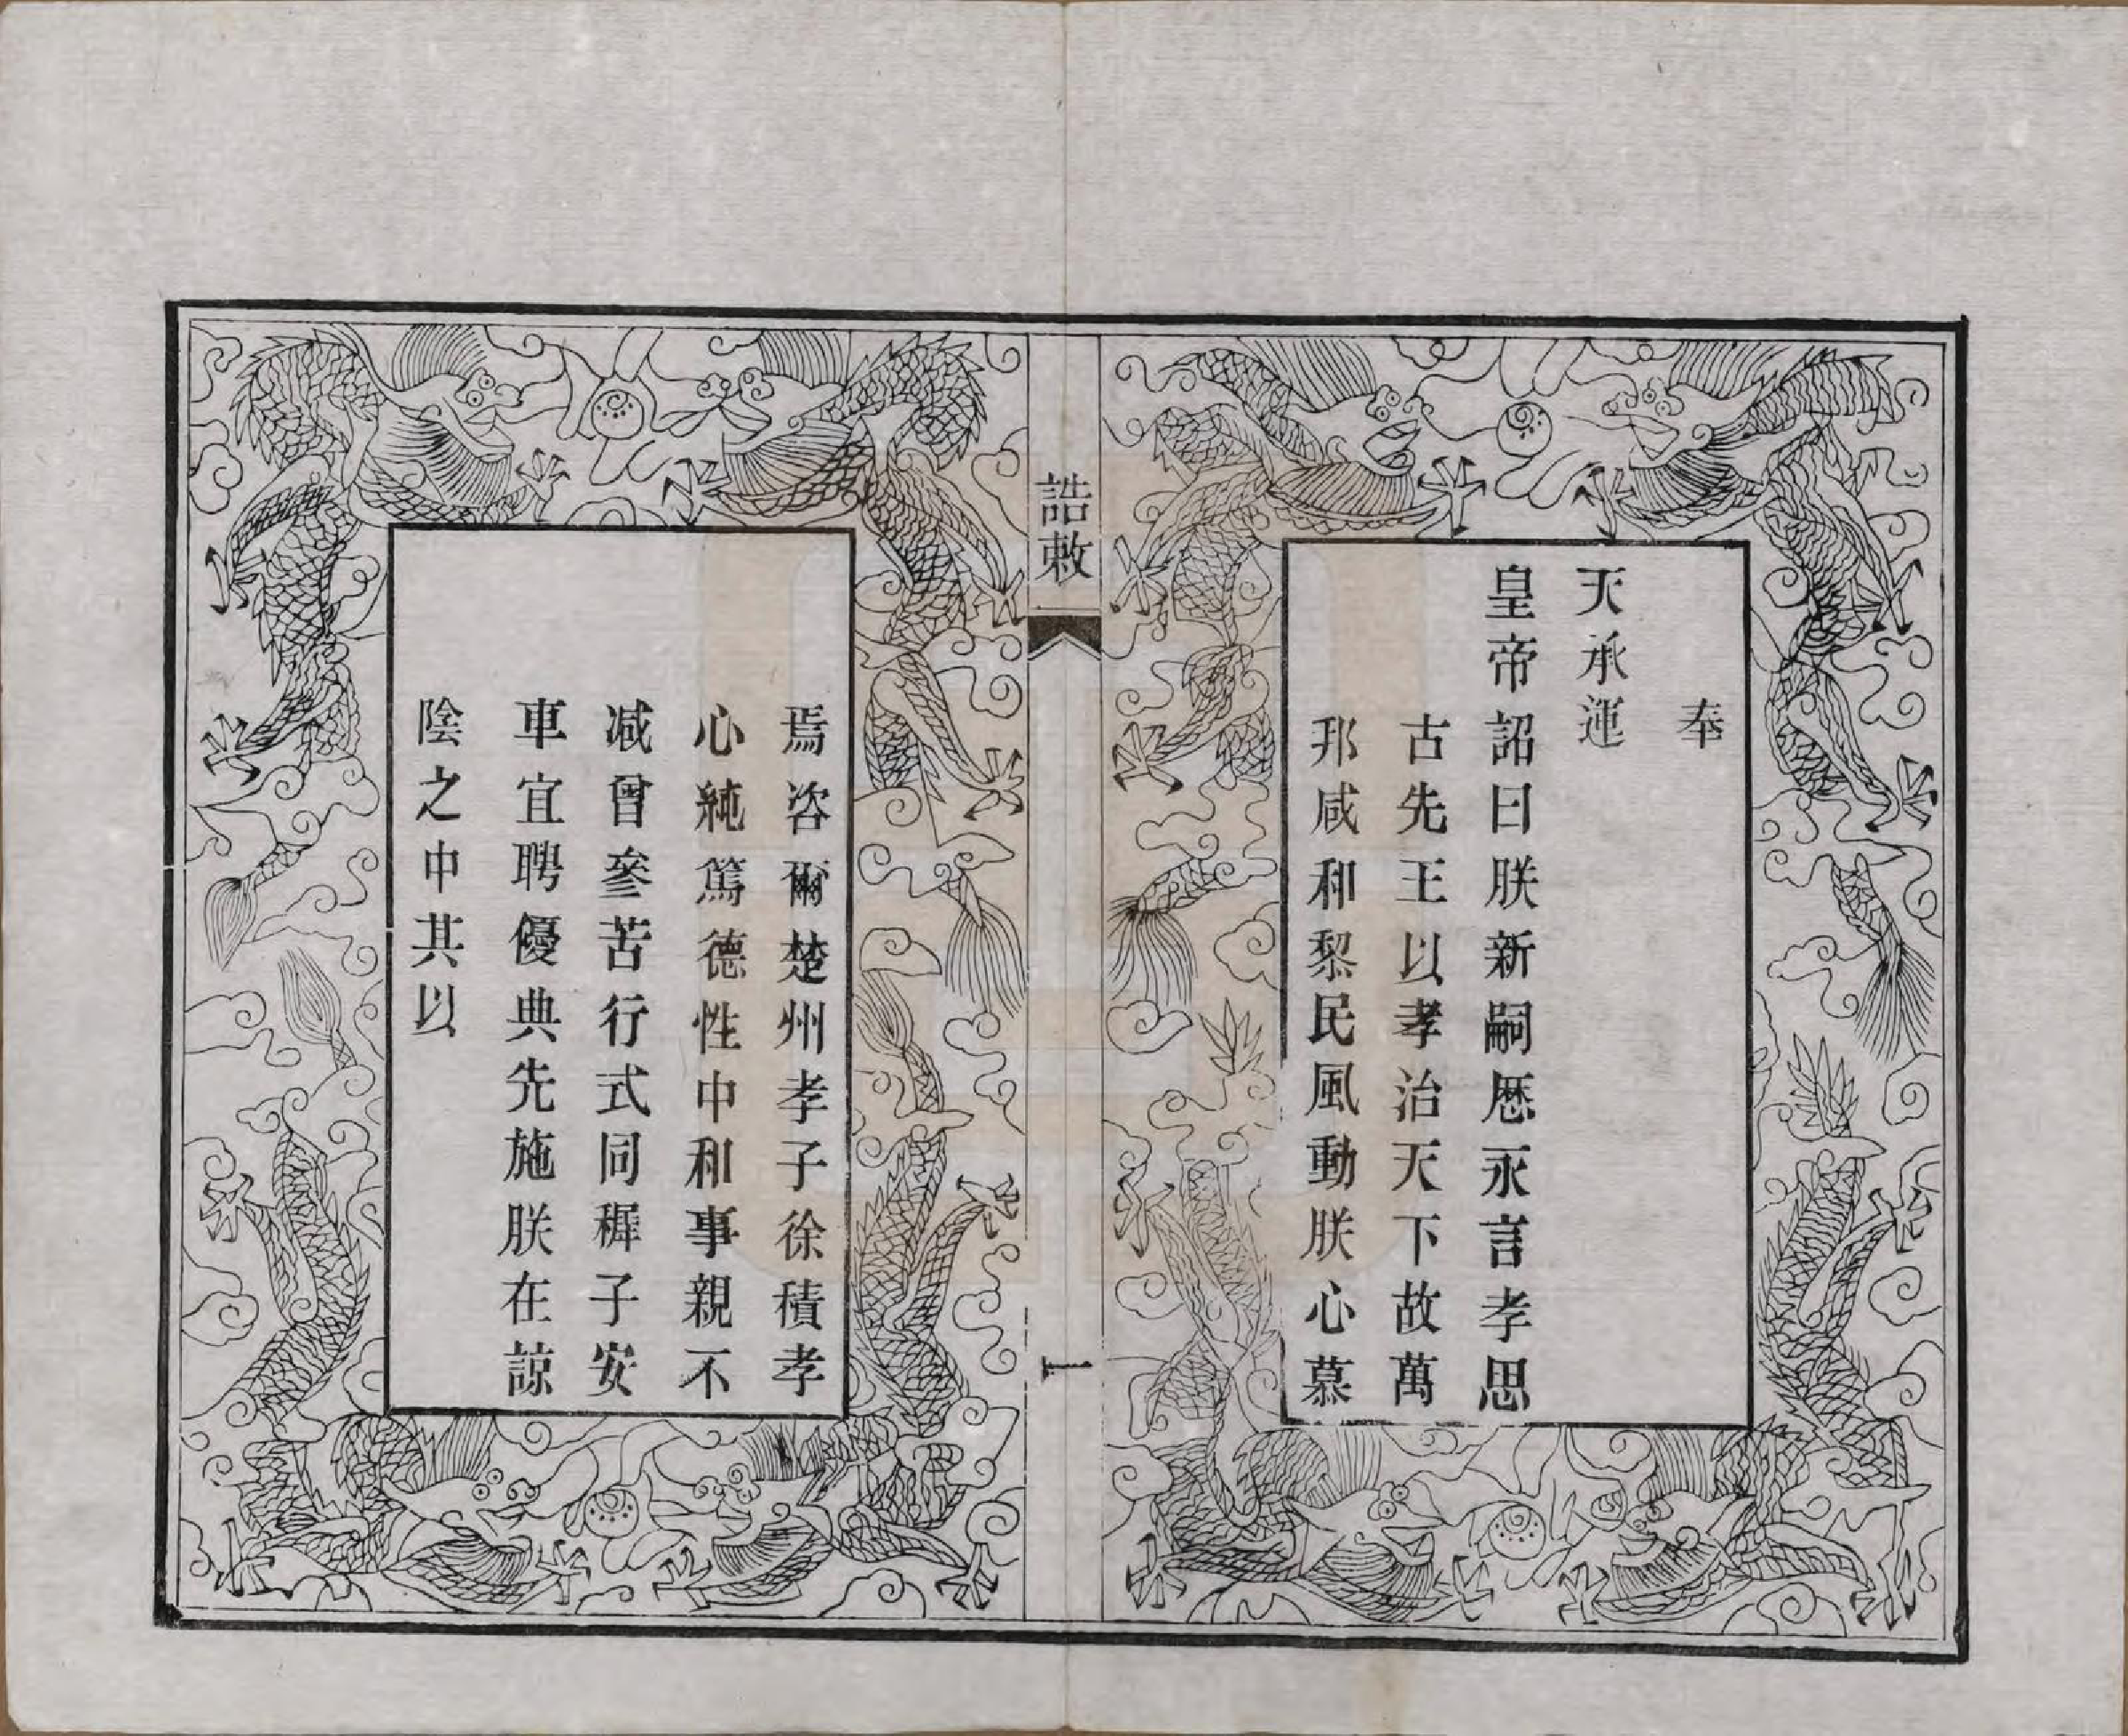 奉
天承運
皇帝詔曰朕新嗣厯永言孝思
古先王以孝治天下故萬
邦咸和黎民風動朕心慕
誥敕
一
焉咨爾楚州孝子徐積孝
心純篤德性中和事親不
减曾參苦行式同穉子安
車宜聘優典先施朕在諒
陰之中其以